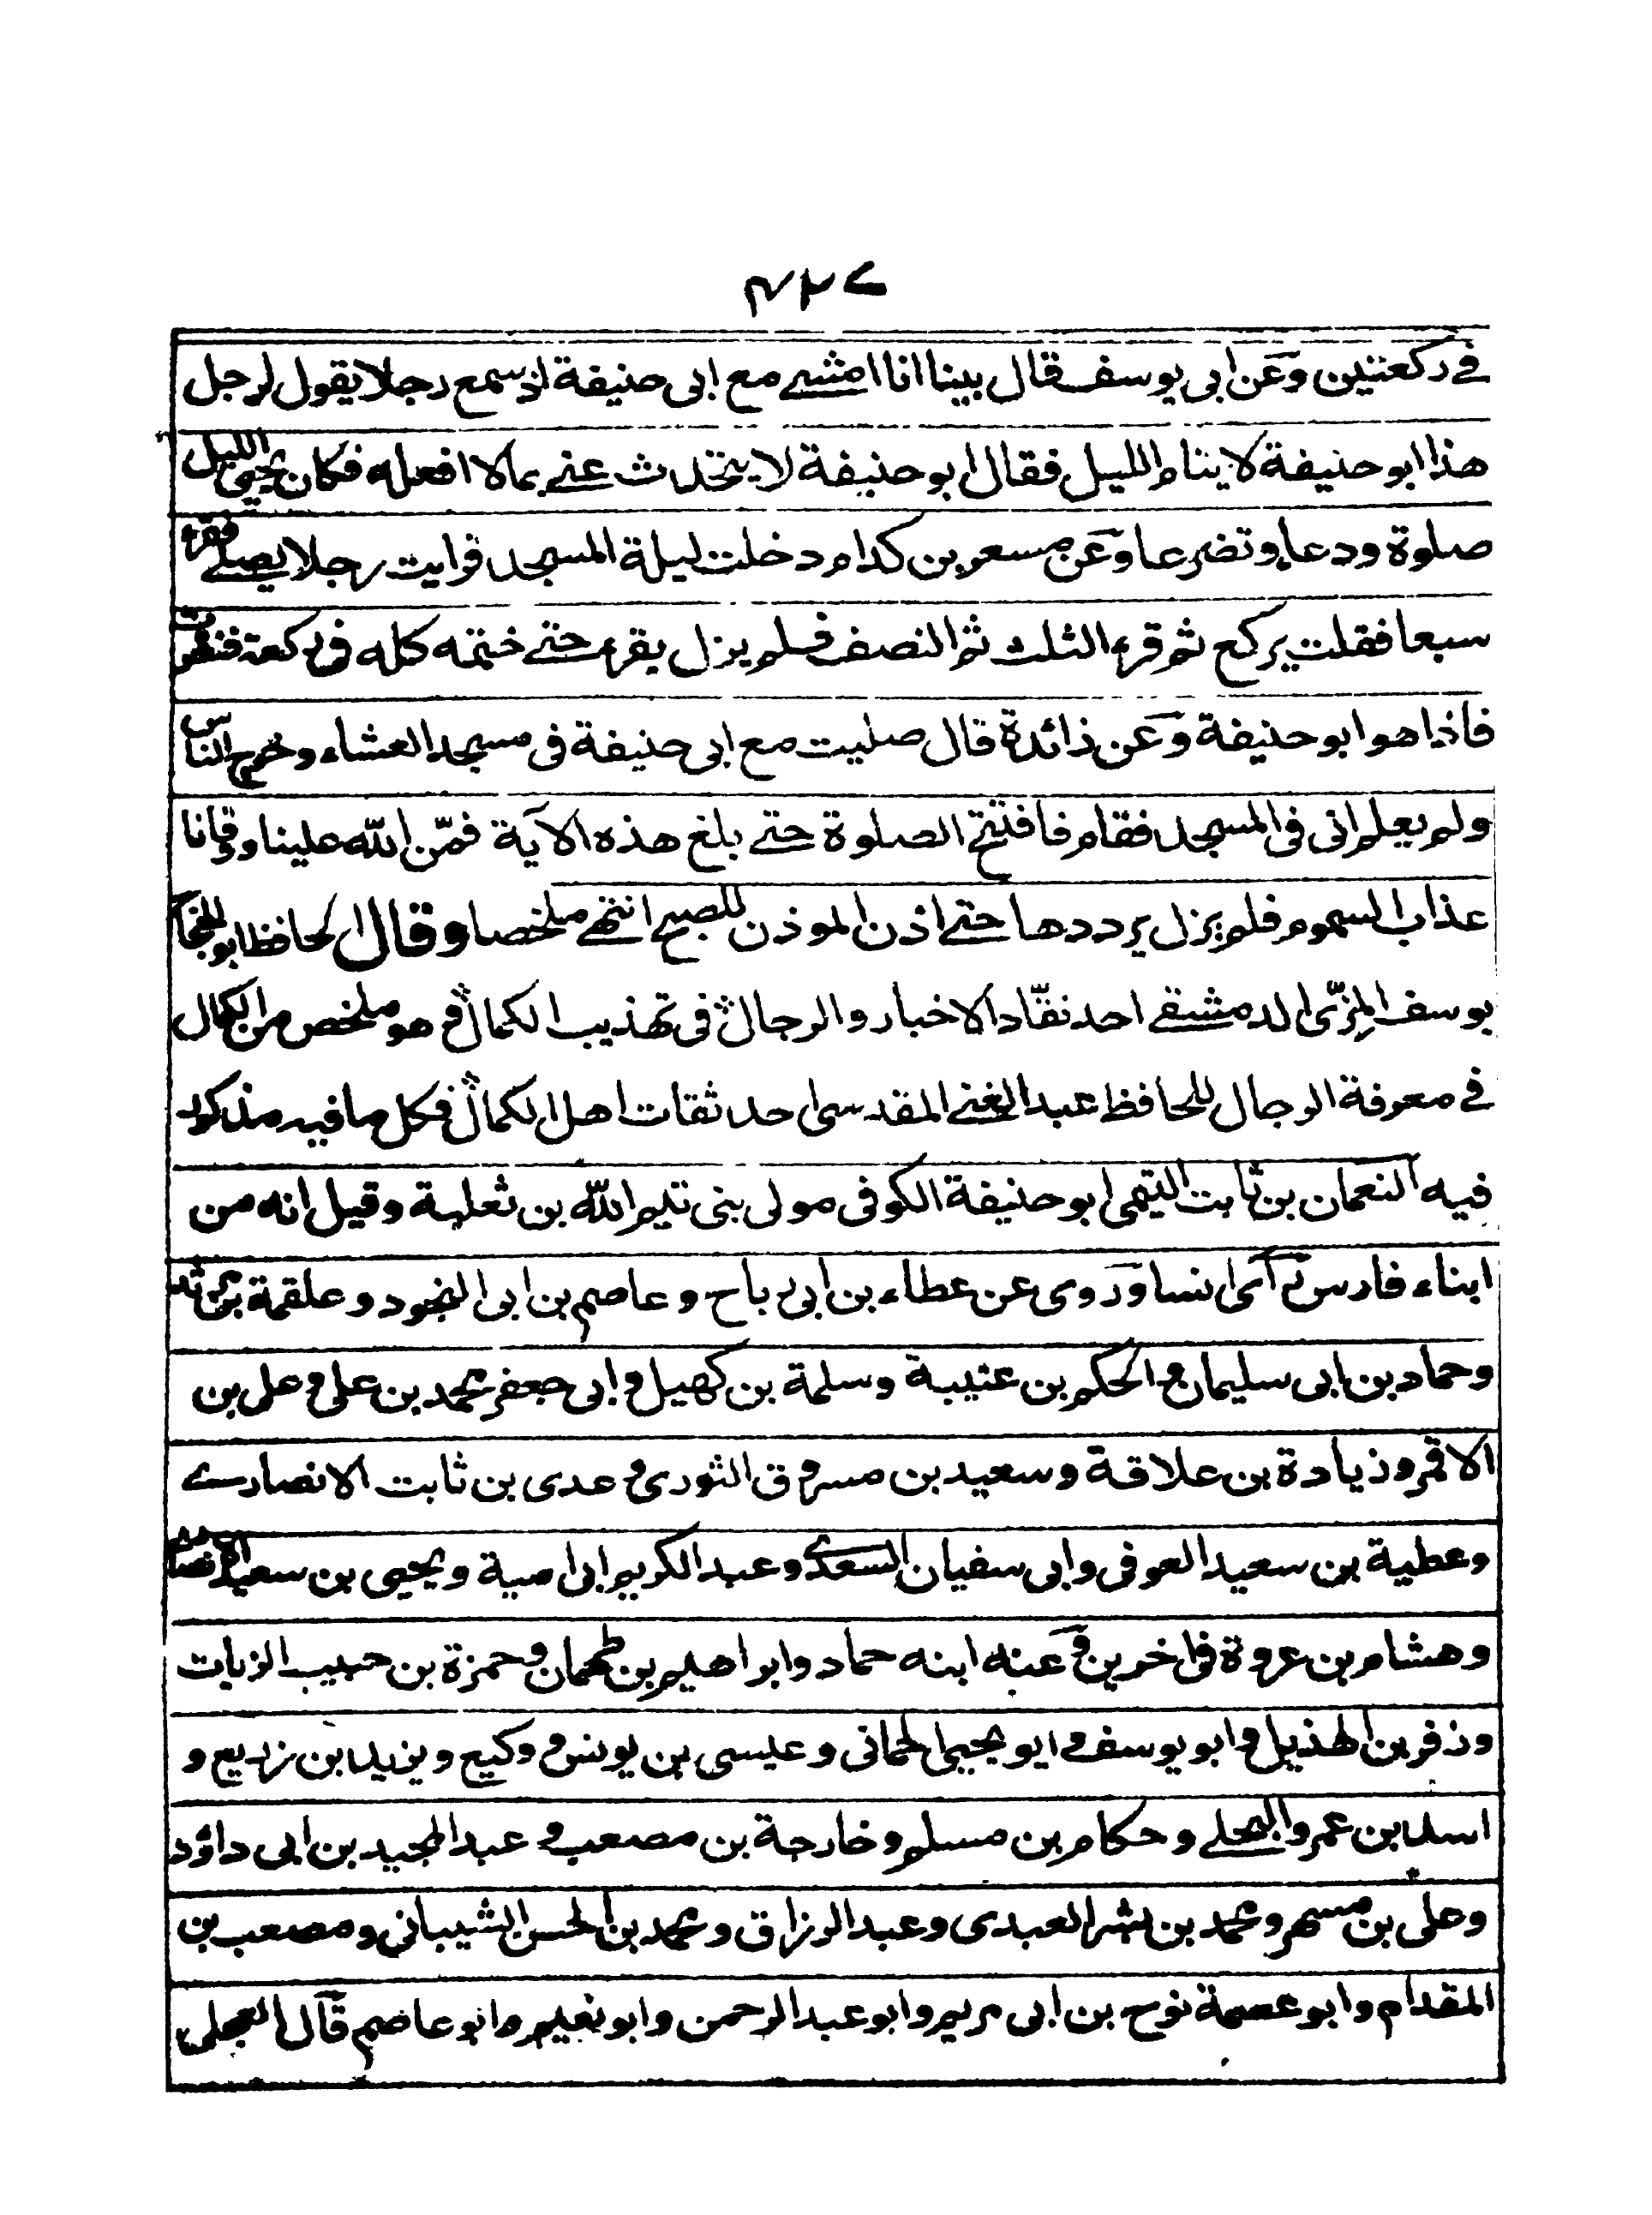 ۴۲۷
في ركعتين وعن ابى يوسف قال بينا انا امشے مع ابى حنيفة اذ سمع رجلا يقول لرجل
هذا ابو حنيفة لا ينام الليل فقال ابو حنيفة لا يتحدث عنے بما لا افعله فكان يحيى الليل
صلوة ودعاء وتضرعا وعن مسعر بن كدام دخلت ليلة المسجد فرايت رجلا يصلے فقرء
سبعا فقلت يركع ثم قرء الثلث ثم النصف فلم يزل يقرء حتے ختمه كله فى ركعة فنظرت
فاذا هو ابو حنيفة وعن زائدة قال صليت مع ابى حنيفة فى مسجد العشاء وخرج الناس
ولم يعلم انى فى المسجد فقام فافتتح الصلوة حتے بلغ هذه الآية فمنّ الله علينا ووقانا
عذاب السموم فلم يزل يرددها حتے اذن الموذن للصبح انتهے ملخصا وقال الحافظ ابو الحجاج
يوسف المِزّى الدمشقے احد نقّاد الاخبار والرجال فى تهذيب الكمال وهو ملخص من الكمال
في معرفة الرجال للحافظ عبد الغنے المقدسى احد ثقات اهل الكمال فكل ما فيه مذكور
فيه النعمان بن ثابت التيمى ابو حنيفة الكوفى مولى بنى تيم الله بن ثعلبة وقيل انه من
ابناء فارس رآى انسا وروى عن عطاء بن ابى رباح وعاصم بن ابى النجود وعلقمة بن مرثد
وحماد بن ابى سليمان والحكم بن عتيبة وسلمة بن كهيل وابى جعفر محمد بن على وعلى بن
الاقمر وزيادة بن علاقة وسعيد بن مسروق الثورى وعدى بن ثابت الانصارے
وعطية بن سعيد العوفى وابى سفيان السعدے وعبد الكريم ابى امية ويحيى بن سعيد الانصارى
وهشام بن عروة فى اخرين وعنه ابنه حماد وابراهيم بن طهمان وحمزة بن حبيب الزيات
وزفر بن الهذيل وابو يوسف وابو يحيى الحمانى وعيسى بن يونس ووكيع ويزيد بن زريع و
اسد بن عمرو البجلے وحكام بن مسلم وخارجة بن مصعب وعبد المجيد بن ابى داؤد
وعلى بن مسهر ومحمد بن بشر العبدى وعبد الرزاق ومحمد بن الحسن الشيبانى ومصعب بن
المقدام وابو عصمة نوح بن ابى مريم وابو عبد الرحمن وابو نعيم وابو عاصم قال العجلى